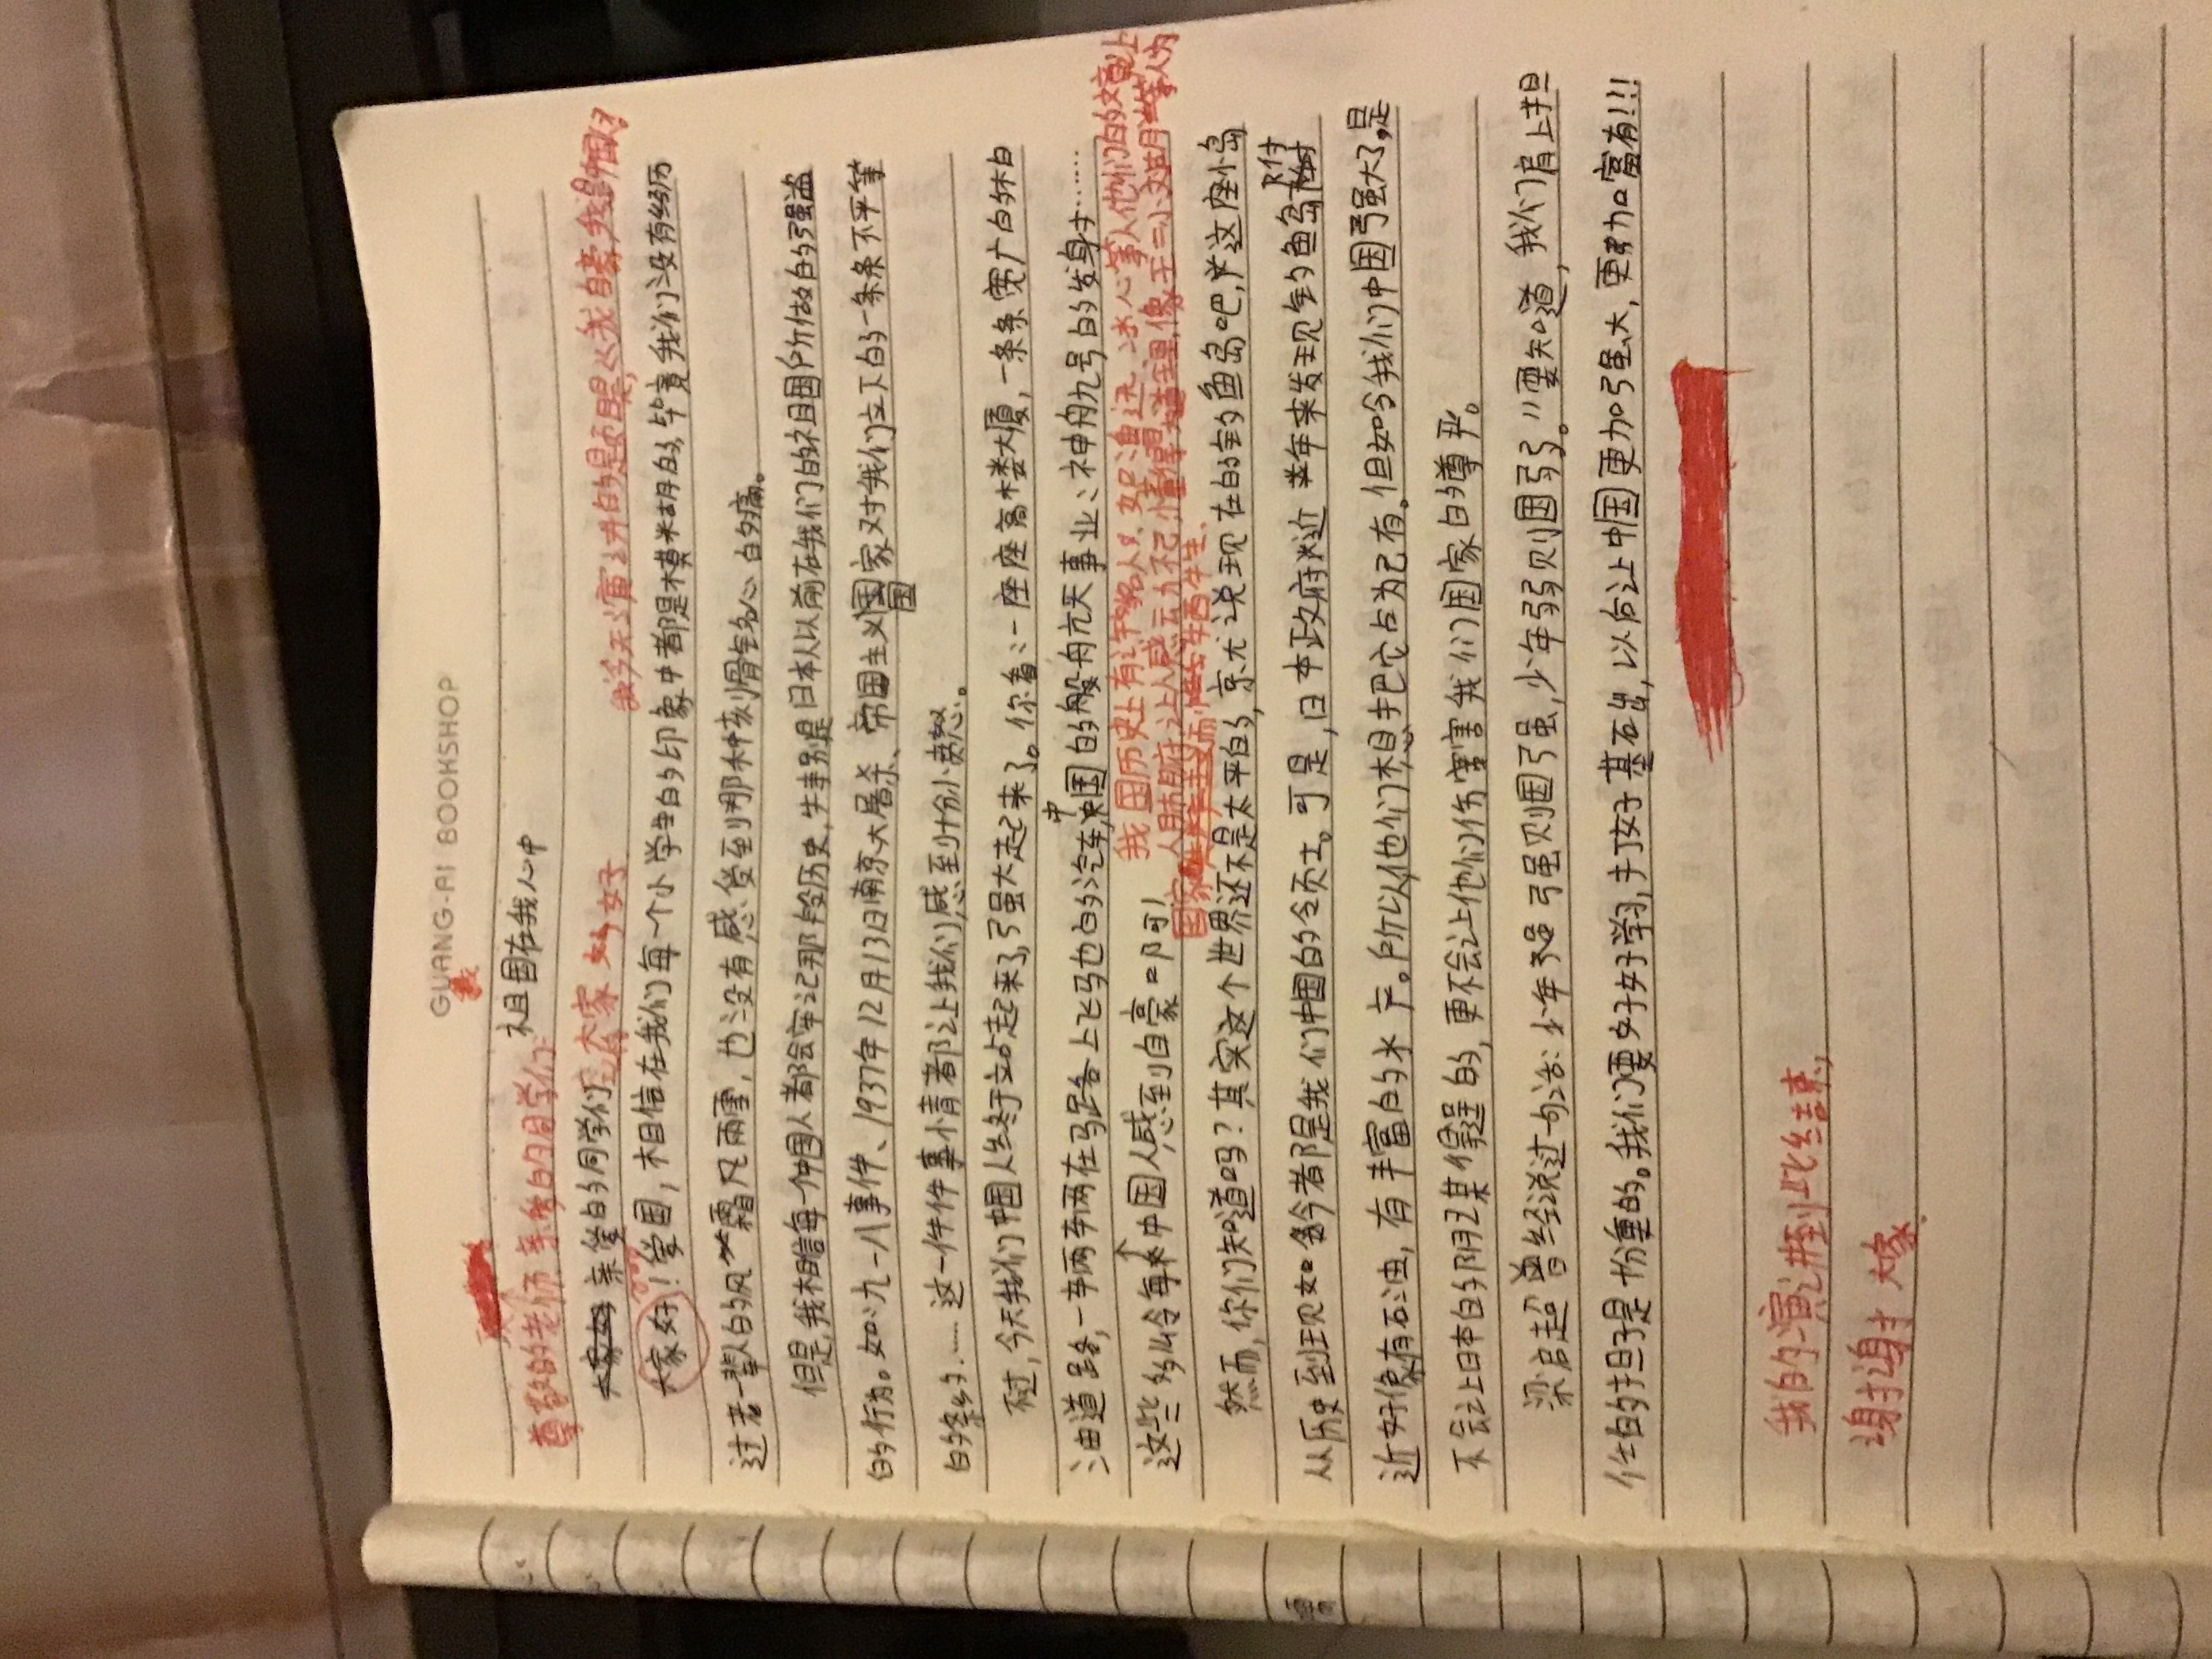 GUANG-AI BOOKSHOP
我
祖国在我心中
尊敬的老师 亲爱的同学们:
亲爱的同学们 大家 好
我今天演讲的是题目是《我自豪,我是中国人》
大家好!爱国,相信在我们每一个小学生的印象中都是模糊的,毕竟我们没有经历
过老一辈人的风霜风雨雪,也没有感受到那种刻骨铭心的痛。
但是,我相信每一个中国人都会牢记那段历史,特别是日本人以前在我们的祖国所做的强盗
的行为。如:九一八事件、1937年12月13日南京大屠杀、帝国主义国家对我们立下的一条条不平等
国
的条约……这一件件事情都让我们感到十分愤怒。
不过,今天我们中国人终于站起来了,强大起来了。你看:一座座高楼大厦,一条条宽广的柏
油道路,一辆两车两在马路上飞驰的汽车,中国的般舟亢天事业:神舟九号的发射……
中
这些多么令每个中国人感到自豪啊!
我国历史上有许多名人,如鲁迅、冰心等人,他们的文章上
人月甫月付让人感云力不己,懂得大道理,像王二小、刘胡兰等人为
国家而牺牲
然而,你们知道吗?其实这个世界还不是太平的,京尤说现在的钓鱼岛吧,这座小岛
从历史到现如今者都是我们中国的领土。可是,日本政府近年来发现钓鱼岛附
近好像有石油,有丰富的水产。所以他们想手把它占为己有。但如今我们中国强大了,是
不会让日本的阴卫某得逞的,更不会让他们伤害我们国家的尊严。
梁启超曾经说过一句话:少年强强则国强,少年弱弱则国弱。"要知道,我们肩上担
任的担子是份重的。我们要好好学习,打好基石出,以后让中国更加强大,更加富有!!!
我的演讲到此结束,
谢谢大家